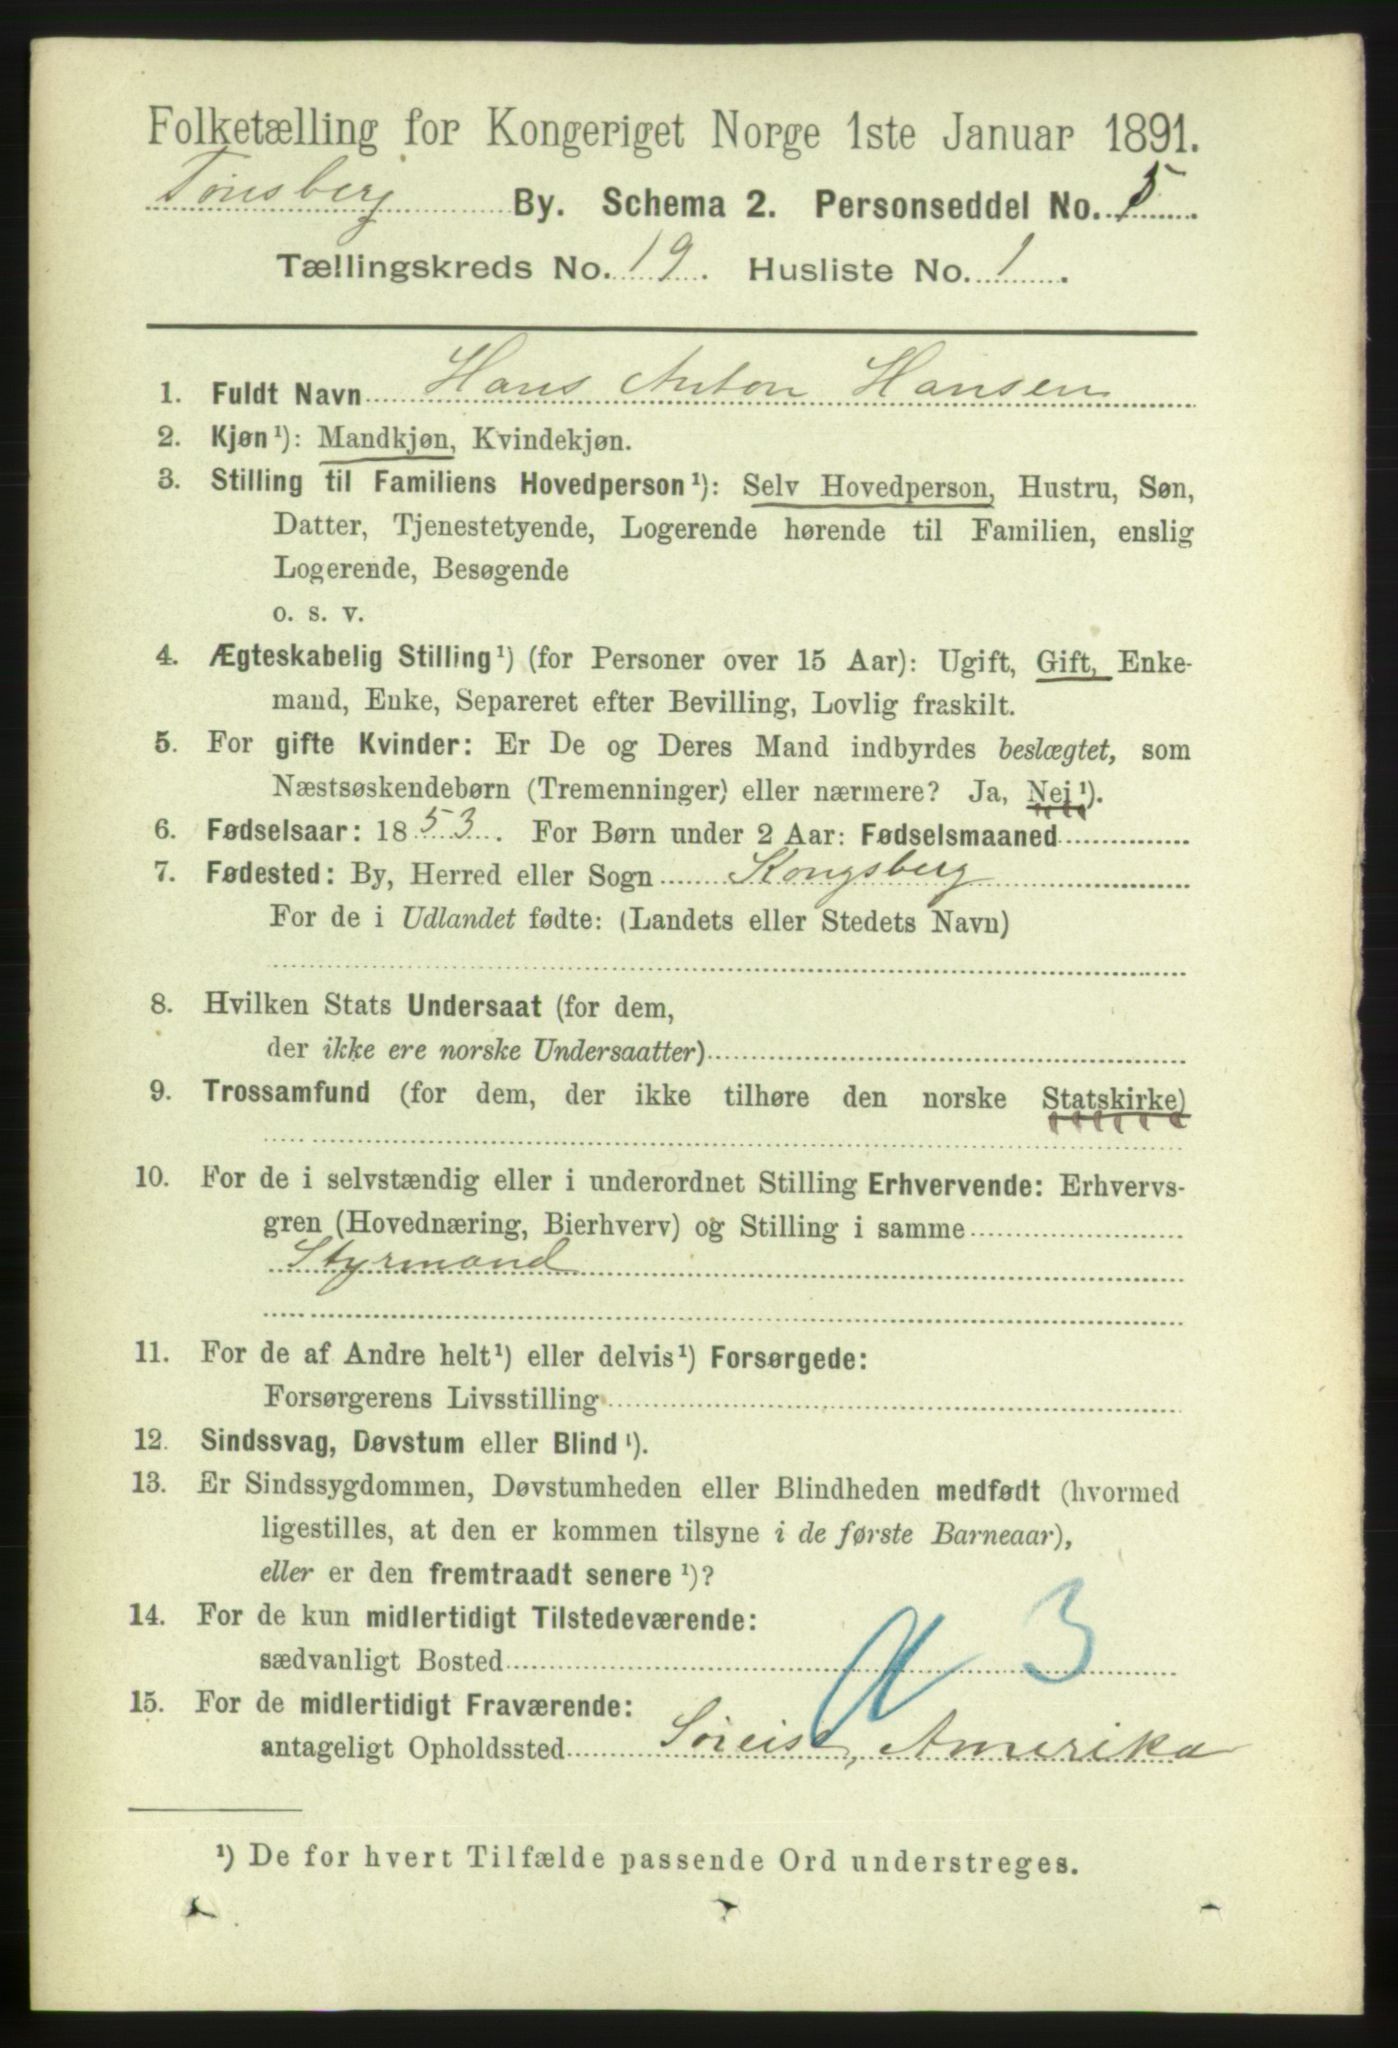 Folketælling for Kongeriget Norge 1ste Januar 1891.
Tønsberg By. Schema 2. Personseddel No. 5
Tællingskreds No. 19. Husliste No. 1.
1. Fuldt Navn Hans Anton Hansen
2. Kjøn¹): Mandkjøn, Kvindekjøn.
3. Stilling til Familiens Hovedperson¹): Selv Hovedperson, Hustru, Søn,
Datter, Tjenestetyende, Logerende hørende til Familien, enslig
Logerende, Besøgende
o. s. v.
4. Ægteskabelig Stilling¹) (for Personer over 15 Aar): Ugift, Gift, Enke-
mand, Enke, Separeret efter Bevilling, Lovlig fraskilt.
5. For gifte Kvinder: Er De og Deres Mand indbyrdes beslægtet, som
Næstsøskendebørn (Tremenninger) eller nærmere? Ja, Nej¹).
6. Fødselsaar: 1853. For Børn under 2 Aar: Fødselsmaaned
7. Fødested: By, Herred eller Sogn Kongsberg
For de i Udlandet fødte: (Landets eller Stedets Navn)
8. Hvilken Stats Undersaat (for dem,
der ikke ere norske Undersaatter)
9. Trossamfund (for dem, der ikke tilhøre den norske Statskirke)
10. For de i selvstændig eller i underordnet Stilling Erhvervende: Erhvervs-
gren (Hovednæring, Bierhverv) og Stilling i samme
Styrmand
11. For de af Andre helt¹) eller delvis¹) Forsørgede:
Forsørgerens Livsstilling
12. Sindssvag, Døvstum eller Blind¹).
13. Er Sindssygdommen, Døvstumheden eller Blindheden medfødt (hvormed
ligestilles, at den er kommen tilsyne i de første Barneaar),
eller er den fremtraadt senere¹)?
14. For de kun midlertidigt Tilstedeværende:
sædvanligt Bosted 3
15. For de midlertidigt Fraværende:
antageligt Opholdssted Amerika
¹) De for hvert Tilfælde passende Ord understreges.